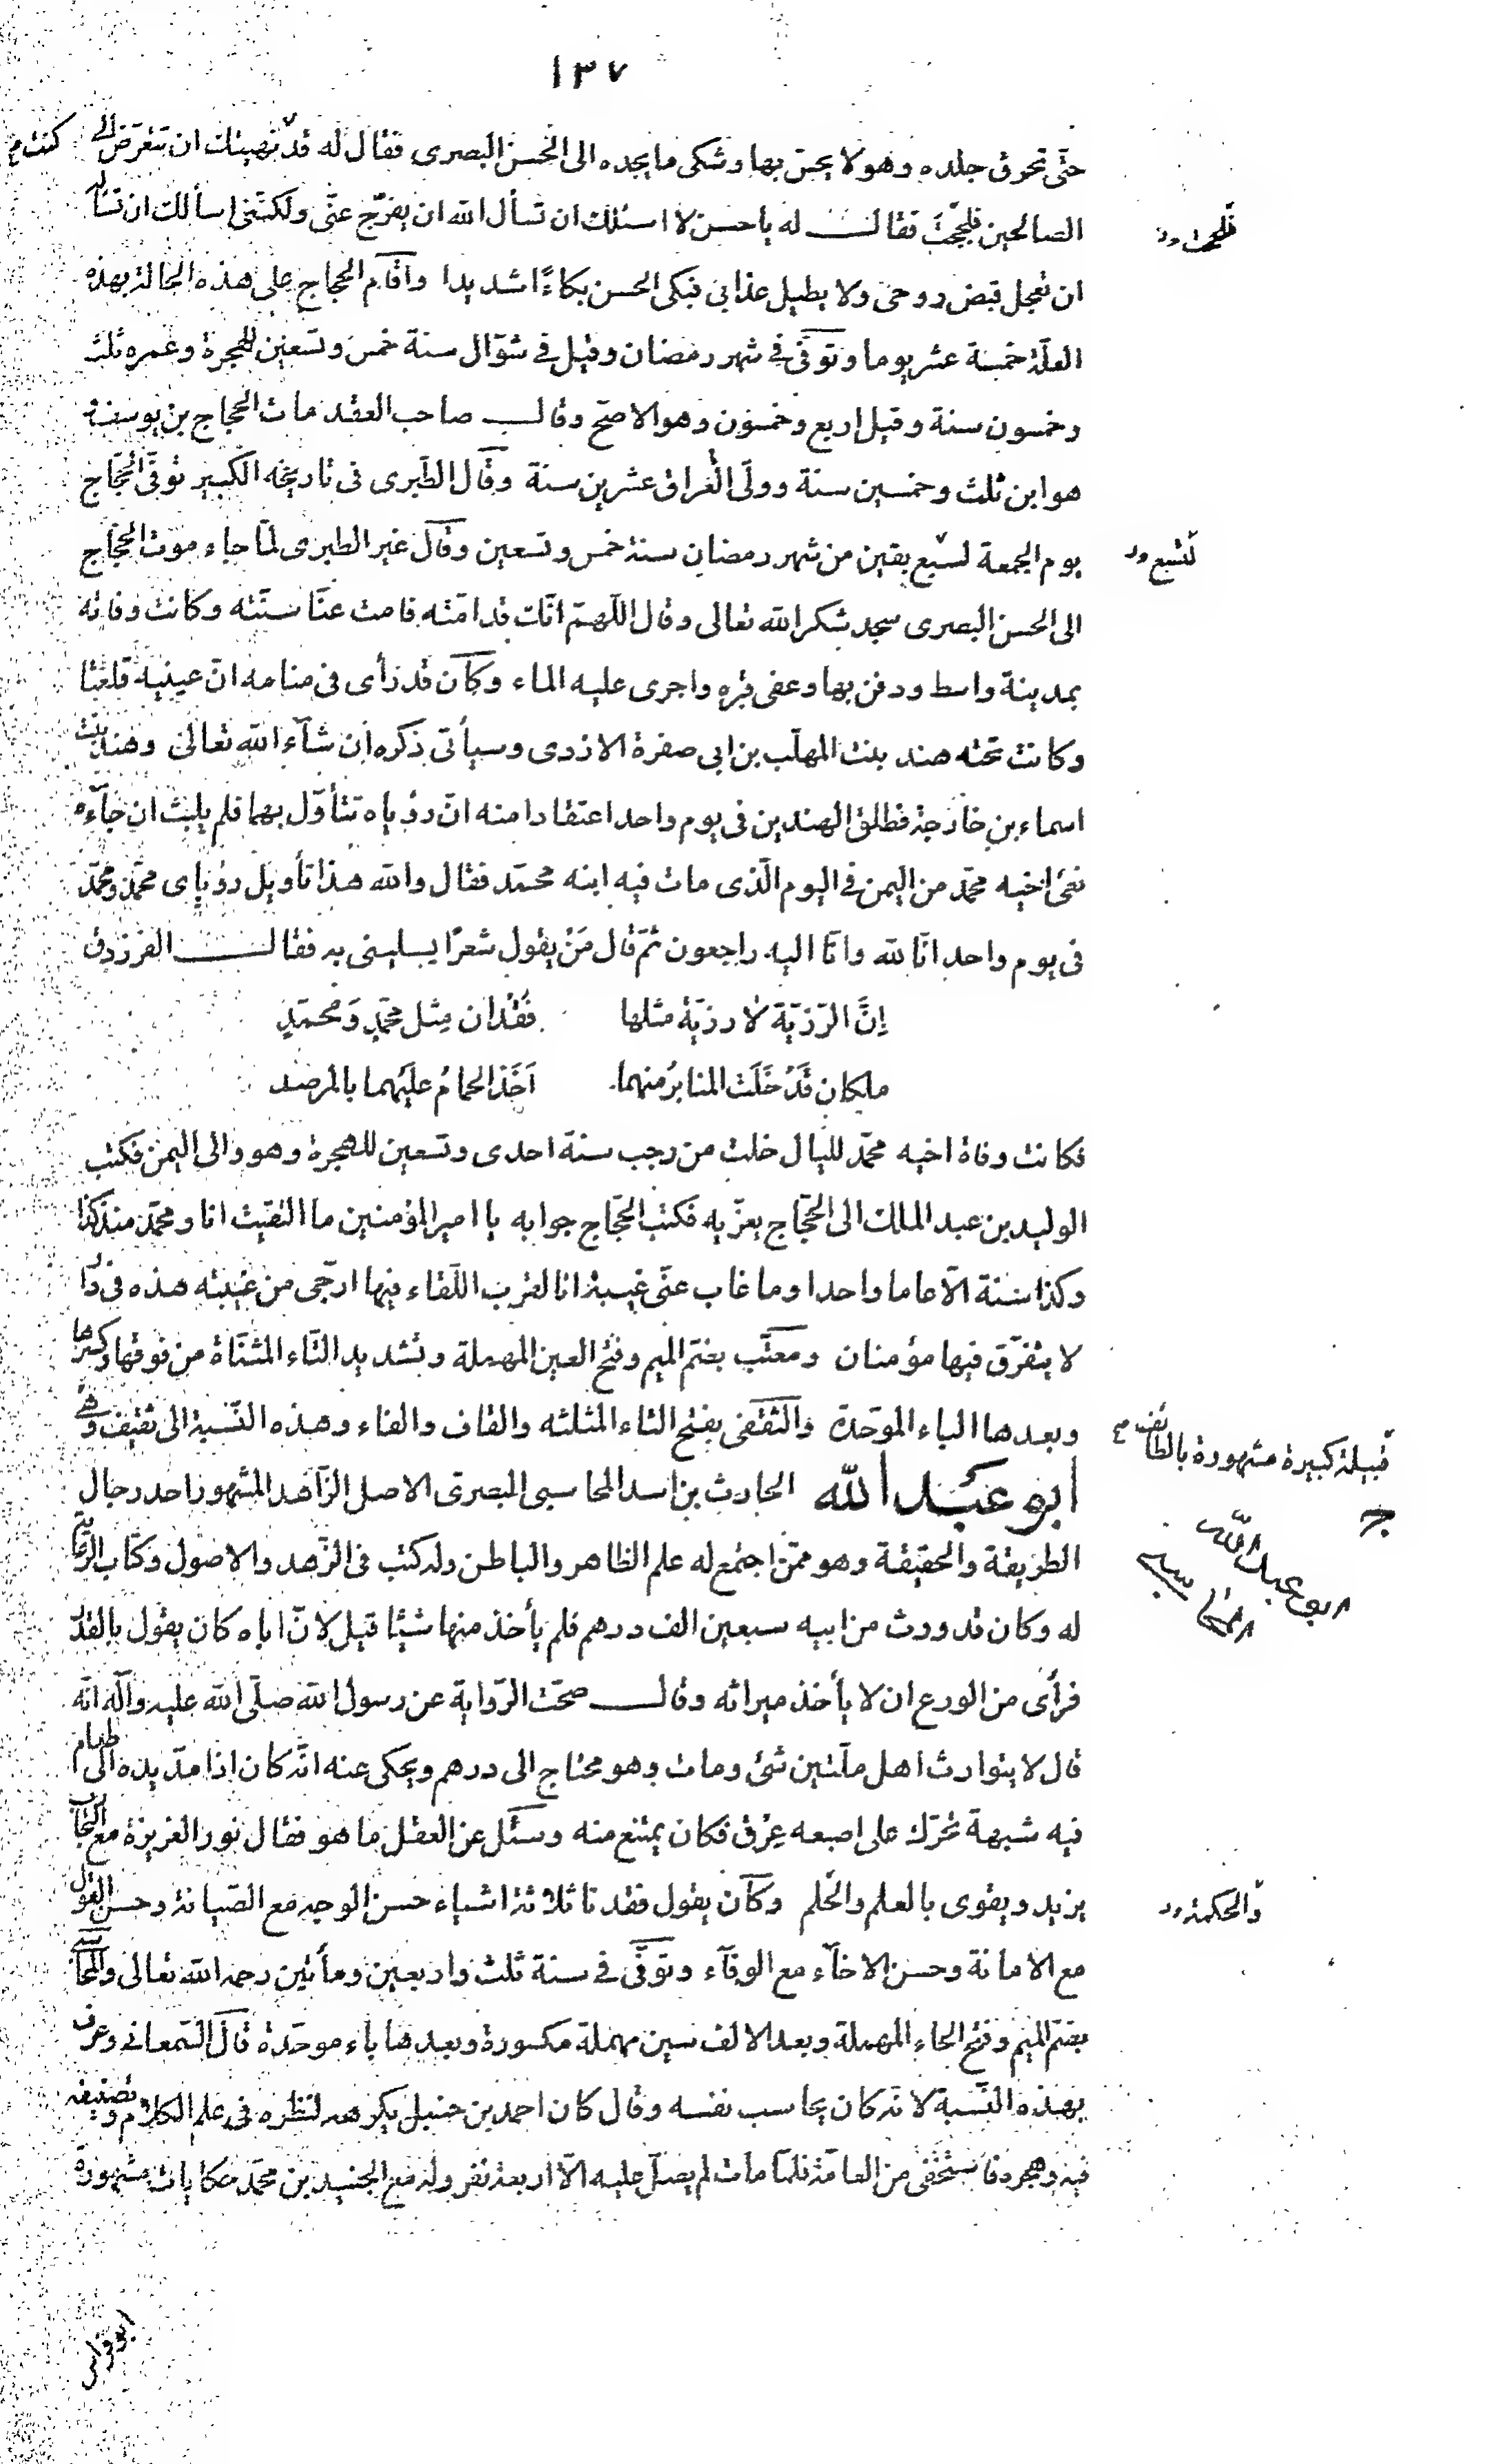 ١٣٧
حتّى تحرق جلده وهو لا يحسّ بها وشكى ما يجده الى الحسن البصرى فقال له قد نهيتك ان تتعرّض الى
كنت م
الصالحين فلججت فقالــــ له يا حسن لا اسئلك ان تسأل الله ان يفرّج عنّى ولكننى اسألك ان تسأله
فلححت د
ان تعجل قبض روحى ولا يطيل عذابى فبكى الحسن بكاءً شديدا واقام الحجاج على هذه الحالة بهذه
العلّة خمسة عشر يوما وتوفّى فى شهر رمضان وقيل فى شوّال سنة خمس وتسعين للهجرة وعمره ثلث
وخمسون سنة وقيل اربع وخمسون وهو الاصحّ وقالــــ صاحب العقد مات الحجاج بن يوسف
هو ابن ثلث وخمسين سنة وولّى العراق عشرين سنة وقال الطّبرى فى تاريخه الكبير توفّى الحجّاج
يوم الجمعة لسبع بقين من شهر رمضان سنة خمس وتسعين وقال غير الطبرى لمّا جاء موت الحجّاج
لتسع د
الى الحسن البصرى سجد شكرا لله تعالى وقال اللّهمّ انّك قد امتّه فامت عنّا سنّته وكانت وفاته
بمدينة واسط ودفن بها وعفى قبره واجرى عليه الماء وكان قد رأى فى منامه انّ عينيه قلعتا
وكانت تحته هند بنت المهلّب بن ابى صفرة الازدى وسيأتى ذكره ان شآء الله تعالى وهند بنت
اسماء بن خارجة فطلق الهندين فى يوم واحد اعتقادا منه انّ رؤياه تتأوّل بهما فلم يلبث ان جآءه
نعى اخيه محمّد من اليمن فى اليوم الّذى مات فيه ابنه محمّد فقال والله هذا تأويل رؤياى محمّد ومحمّد
فى يوم واحد انّا لله وانّا اليه راجعون ثمّ قال مَنْ يقول شعرًا يسلينى به فقالـــــ الفرزدق
إنَّ الرّزيّة لا رزيّة مثلها فقدان مثل محمّدٍ وَمحمّدٍ
ملكان قَدْ خَلَت المنابرُ منهما اَخَذ الحمامُ عليهما بالمرصد
فكانت وفاة اخيه محمّد لليال خلت من رجب سنة احدى وتسعين للهجرة وهو والى اليمن فكتب
الوليد بن عبد الملك الى الحجّاج يعزّيه فكتب الحجّاج جوابه يا امير المؤمنين ما التقيت انا ومحمّد منذ كذا
وكذا سنة الّا عاما واحدا وما غاب عنّى غيبة انا لقرب اللّقاء فيها ارجى من غيبته هذه فى دار
لا يتفرّق فيها مؤمنان ومعتّب بضمّ الميم وفتح العين المهملة وتشديد التّاء المثنّاة من فوقها وكسرها
وبعدها الباء الموحّدة والثقفى بفتح الثاء المثلثه والقاف والفاء وهذه النّسبة الى ثقيف وهى
قبيلة كبيرة مشهورة بالطائف م
ابو عبد الله الحارث بن اسد المحاسبى البصرىّ الاصل الزّاهد المشهور احد رجال
ابو عبد الله المحاسبى
الطريقة والحقيقة وهو ممّن اجتمع له علم الظاهر والباطن وله كتب فى الزّهد والاصول وكتاب الرّعاية
له وكان قد ورث من ابيه سبعين الف درهم فلم يأخذ منها شيئا قيل لانّ اباه كان يقول بالقدر
فرأى من الورع ان لا يأخذ ميراثه وقالـــــ صحّت الرّواية عن رسول الله صلّى الله عليه وآله انّه
قال لا يتوارث اهل ملّتين شئ ومات وهو محتاج الى درهم ويحكى عنه انّه كان اذا مدّ يده الى طعام
فيه شبهة تحرّك على اصبعه عِرْق فكان يمتنع منه وسئل عن العقل ما هو فقال نور الغريزة مع التجارب
يزيد ويقوى بالعلم والحلم وكان يقول فقدنا ثلاثة اشياء حسن الوجه مع الصّيانة وحسن القول
والحكمة د
مع الامانة وحسن الاخآء مع الوفآء وتوفّى فى سنة ثلث واربعين ومأتين رحمه الله تعالى والمحاسبى
بضمّ الميم وفتح الحاء المهملة وبعد الالف سين مهملة مكسورة وبعدها باء موحّدة قال السّمعانى وعرف
بهذه النّسبة لانّه كان يحاسب نفسه وقال كان احمد بن حنبل يكرهه لنظره فى علم الكلام وتصنيفه
فيه وهجره فاستخفى من العامّة فلمّا مات لم يصلّ عليه الّا اربعة نفر وله مع الجنيد بن محمّد حكايات مشهورة
ابو فراس